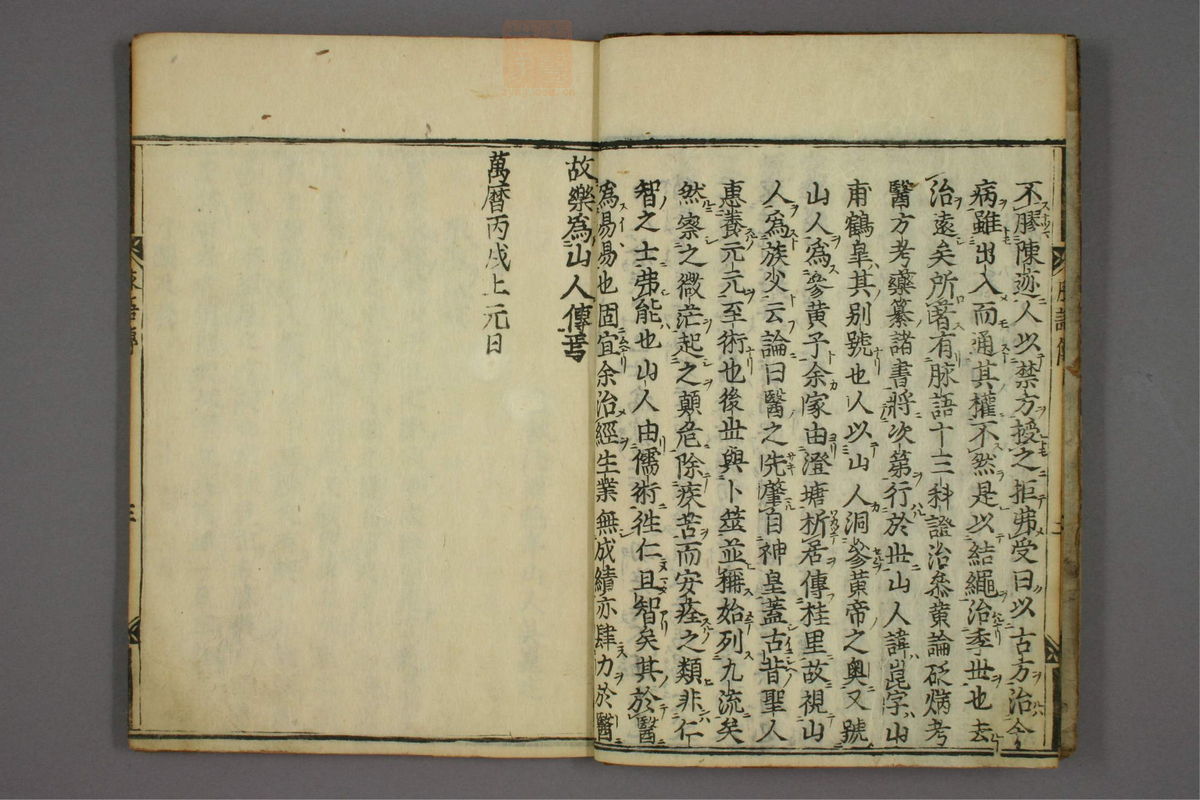 不膠陳迹人以禁方授之拒弗受曰以古方治今
病雖出入而通其權不然是以結繩治季世也去
治遠矣所著有脉語十三科證治參黄論砭焫考
醫方考藥纂諸書將次第行於世山人諱崑字山
甫鶴皐其别號也人以山人洞參黄帝之奥又號
山人為參黄子余家由澄塘析居傳桂里故視山
人為族父云論曰醫之先肇自神皇蓋古昔聖人
惠養元元至術也後世與卜筮並稱始列九流矣
然察之微茫起之顛危除疾苦而安痊之類非仁
智之士弗能也山人由儒術徃仁且智矣其於醫
為易易也固宜余治經生業無成績亦肆力於醫
故樂為山人傳焉
萬曆丙戌上元日
三